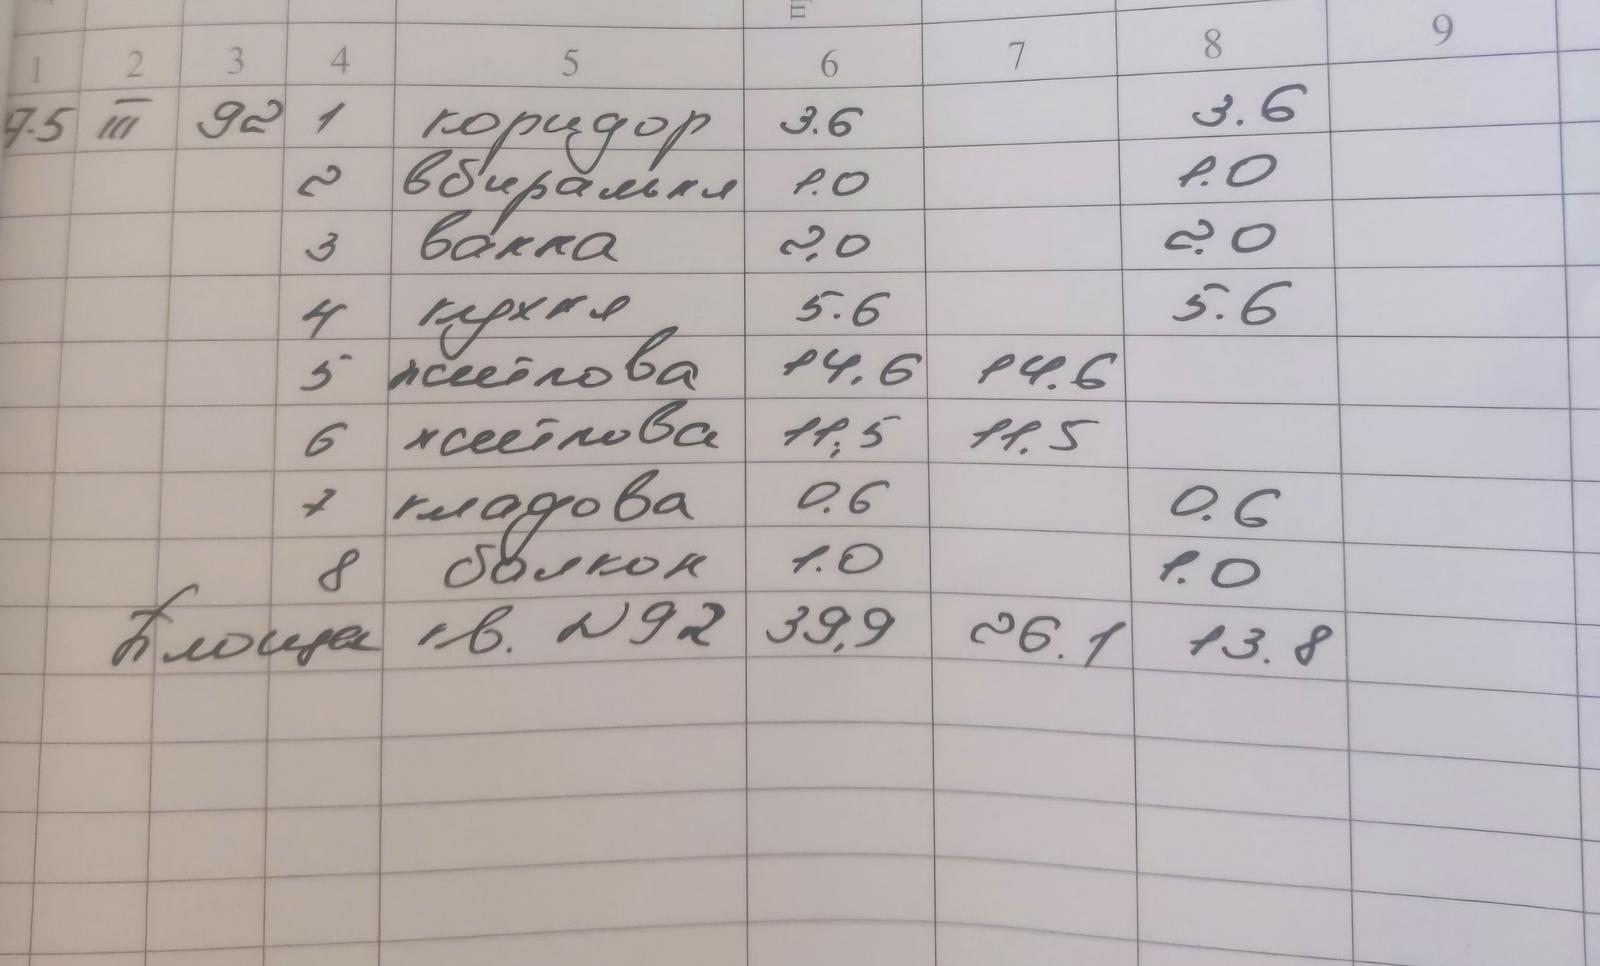 1 2 3 4 5 6 7 8 9
7.5 III 92 1 коридор 3.6 3.6
2 вбиральня 1.0 1.0
3 ванна 2,0 2.0
4 кухня 5.6 5.6
5 житлова 14.6 14.6
6 житлова 11,5 11.5
7 кладова 0.6 0.6
8 балкон 1.0 1.0
Площа кв. №92 39,9 26.1 13.8